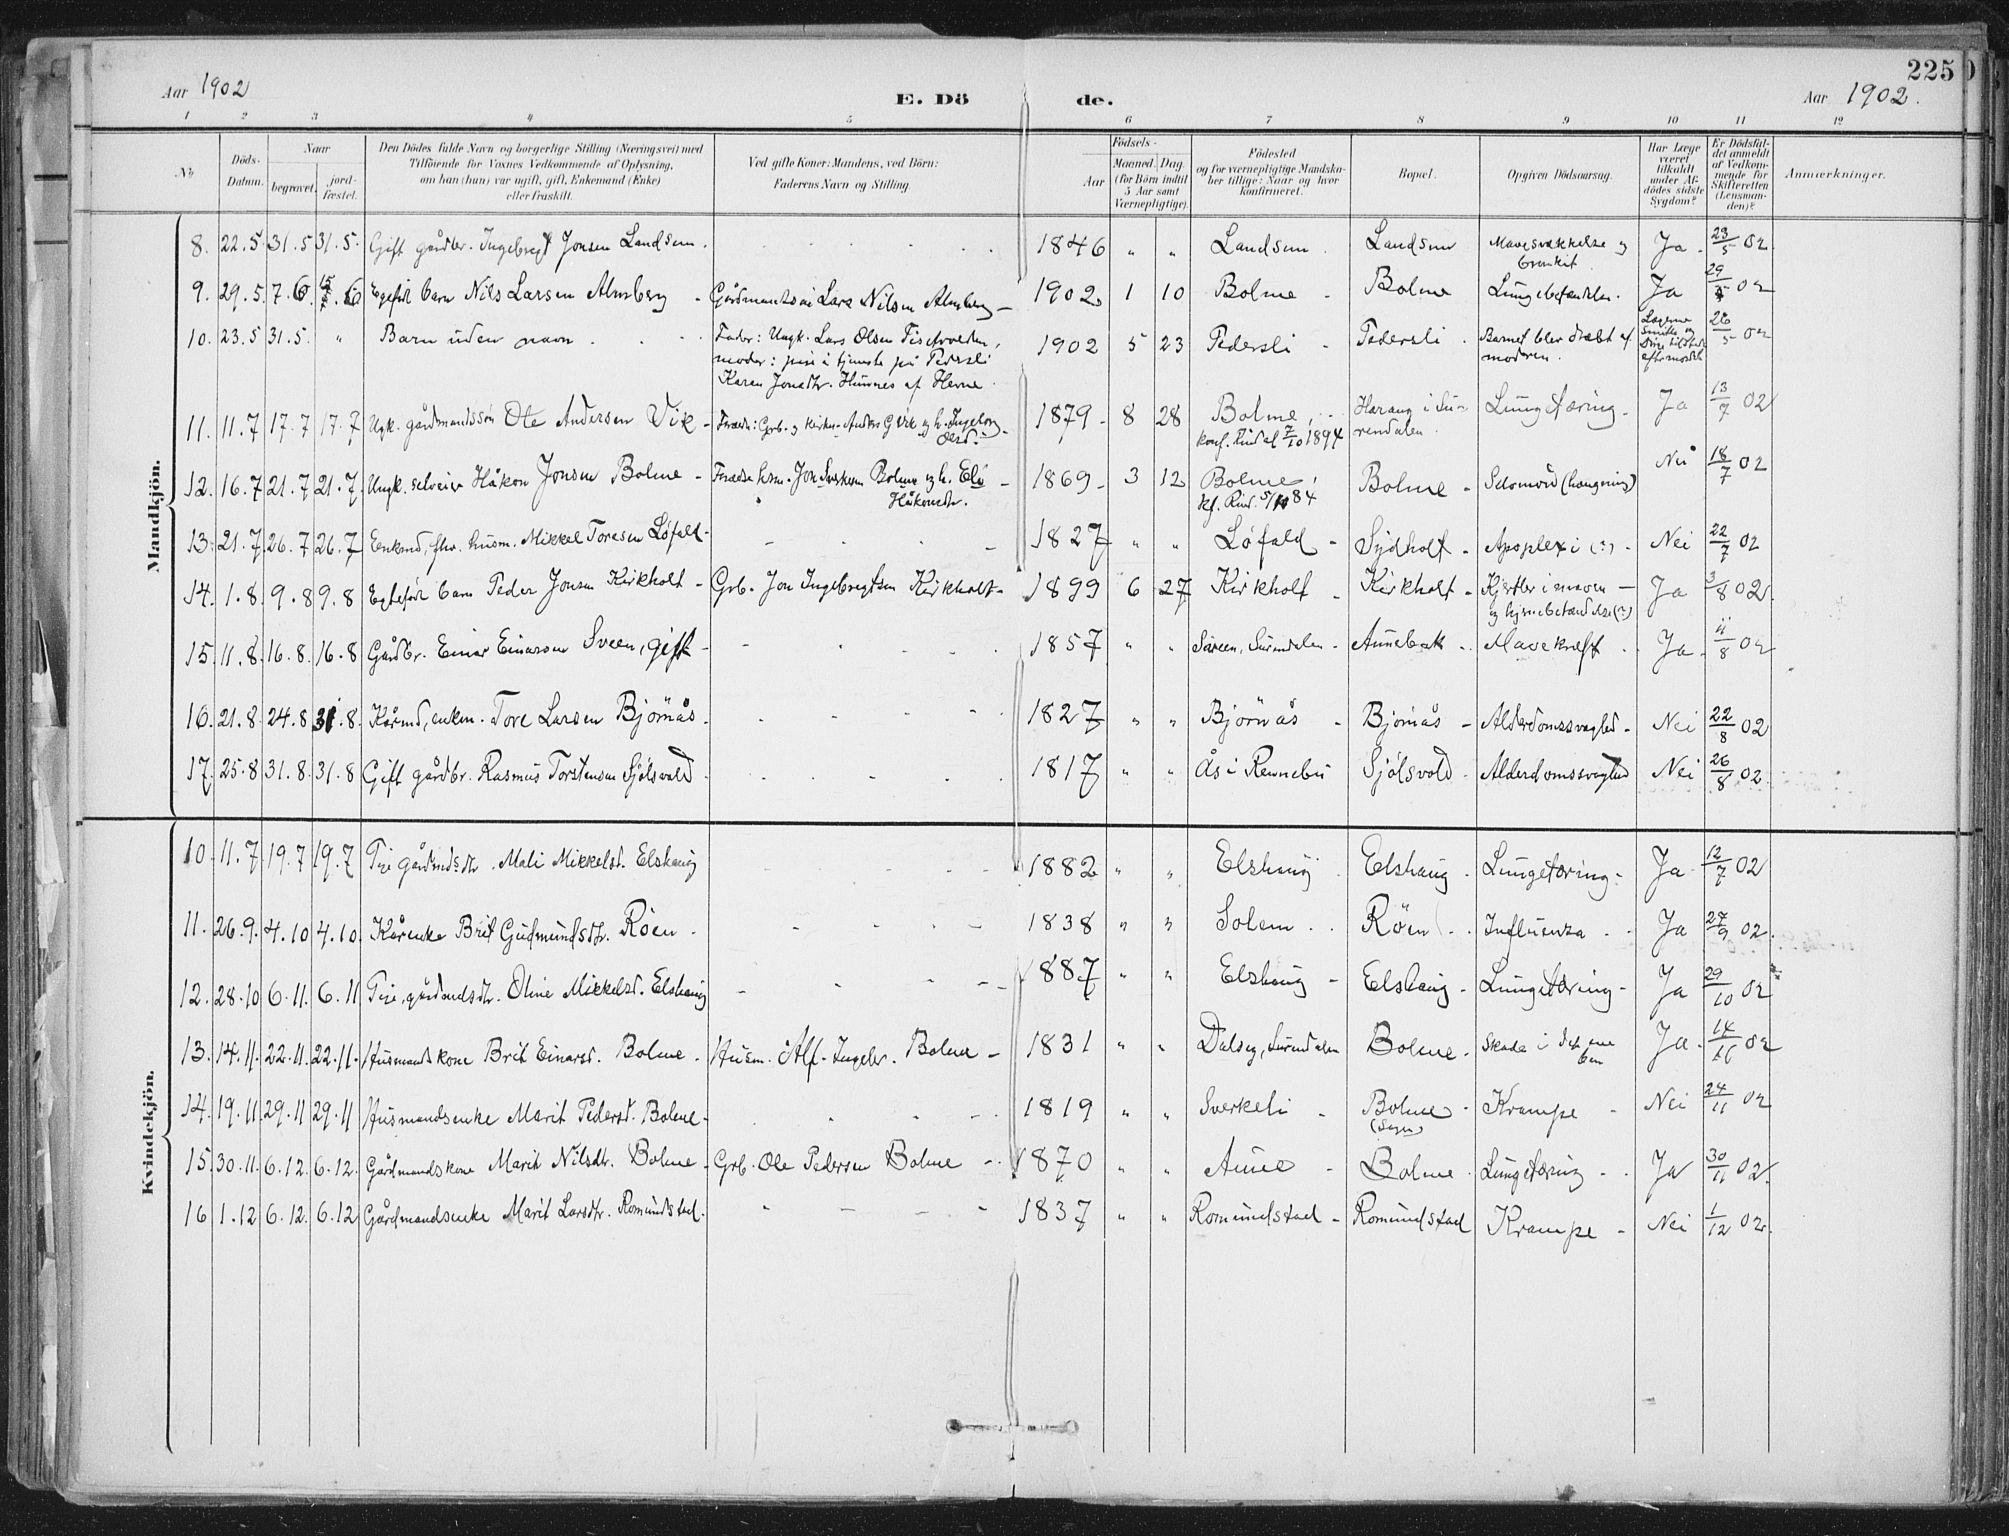 225
Aar 1902
E. Dö de.
Aar 1902.
1 2 3 4 5 6 7 8 9 10 11 12
No
Döds-Datum.
Naar
begravet.
jord-fæstet.
Den Dödes fulde Navn og borgerlige Stilling (Næringsvei) med
Tilföiende for Voxnes Vedkommende af Oplysning,
om han (hun) var ugift, gift, Enkemand (Enke)
eller fraskilt.
Ved gifte Koner: Mandens, ved Börn:
Faderens Navn og Stilling.
Födsels-
Aar
Maaned. Dag.
(for Börn indtil
5 Aar samt
Værnepligtige).
Födested
og for værnepligtige Mandskaber tillige: Naar og hvor
konfirmeret.
Bopæl.
Opgiven Dödsaarsag.
Har Læge
været
tilkaldt
under Afdödes sidste
Sygdom?
Er Dödsfaldet anmeldt
af Vedkommende for
Skifteretten
(Lensmanden)?
Anmærkninger.
Mandkjön.
8. 22.5. 31.5 31.5. Gift gårdbr. Ingebregt Jonsen Landsem. 1846 " " Landsem. Landsem Mavesvækkelse og Ja. 23/5 02.
9. 29.5. 7.6. Egefød barn Nils Larsen Almberg - Gårdmandssøn Lars Nilsen Almberg - 1902 1 10 Bolme - Bolme Lungebetændelse. Ja 29/5 02
10. 23.5 31.5. " Barn uden navn. Fader: Ungk. Lars Olsen 1902 5 23 Pedersli - Pedersli Barnet blev dræbt af 26/5 02
moder: pige i tjeneste på Pedersli
moderen.
Karen Jonsdtr. af Hevne.
11. 11.7 17.7 17.7 Ugk. gårdmandssøn Ole Andersen Vik - Forældre: Grb. og Anders G Vik og h. Ingeborg 1879 - 8 28 Bolme, Harang i Surendalen. Lungetæring - Ja 13/7 02
konf. Rindal 7/10 1894
12. 16.7 21.7 21.7. Ungk. selveier Håkon Jonsen Bolme - Forældre hsm. Jon Bolme og h. Eli 1869 - 3 12 Bolme, Bolme - Selvmord (hængning) Nei 18/7 02
Håkonsdtr.
kf. Rind. 84
13. 21.7 26.7 26.7 Enkemd, fhv. husm. Mikkel Toresen Løfald - 1827 " " Løfald - Sydholt - Apoplexi (?) - Nei 22/7 02
14. 1.8. 9.8 9.8 Egtefød barn Peder Jonsen Kirkholt - Grb. Jon Ingebregtsen Kirkholt - 1899 6 27 Kirkholt - Kirkholt - Kjertler i maven - Ja 3/8 02.
og hjernebetændelse (?)
15. 11.8. 16.8. 16.8 Gårdbr. Einar Einarsen Sveen, gift - 1857 " " Sveen, Surendalen - Aunebak - Mavekræft Ja. 11/8 02
16. 21.8. 24.8 31.8. Kårmd, enkem. Tore Larsen Bjørnås. 1827 " " Bjørnås - Bjørnås - Alderdomssvaghed - Nei 22/8 02
17. 25.8 31.8. 31.8 Gift gårdbr. Rasmus Torstensen Sjølsvold 1817 " " Ås i Rennebu Sjølsvold - Alderdomssvaghed Nei 26/8 02.
Kvindekjön.
10. 11.7 19.7 19.7 Pige gårdmdsdtr. Mali Mikkelsd. Elshaug 1882 " " Elshaug Elshaug - Lungetæring - Ja 12/7 02
11. 26.9. 4.10 4.10. Kårenke Brit Gudmundsdtr. Röen. 1838 " " Solem. Röen. Influenza. Ja 27/9 02.
12. 28.10 6.11. 6.11. Pige, gårdmdsdtr. Oline Mikkelsd. Elshaug 1887 " " Elshaug - Elshaug - Lungetæring - Ja 29/10 02
13. 14.11. 22.11. 22.11. Husmandskone Brit Einarsd. Bolme. Husm. Alf. Ingebr. Bolme - 1831 " " Dalseg, Surendalen Bolme - Skade i det ene ben Ja. 14/11 02
14. 19.11. 29.11 29.11 Husmandsenke Marit Pedersd. Bolme - 1819 " " Sverkeli - Bolme - Krampe - Nei 24/11 02
15. 30.11. 6.12. 6.12. Gårdmandskone Marit Nilsdtr. Bolme - Grb. Ole Pedersen Bolme - 1870 " " Aune - Bolme. Lungetæring - Ja 30/11 02.
16 1.12 6.12. 6.12 Gårdmandsenke Marit Larsdtr. Romundstad. 1837 " " Romundstad - Romundstad Krampe - Nei 1/12 02.